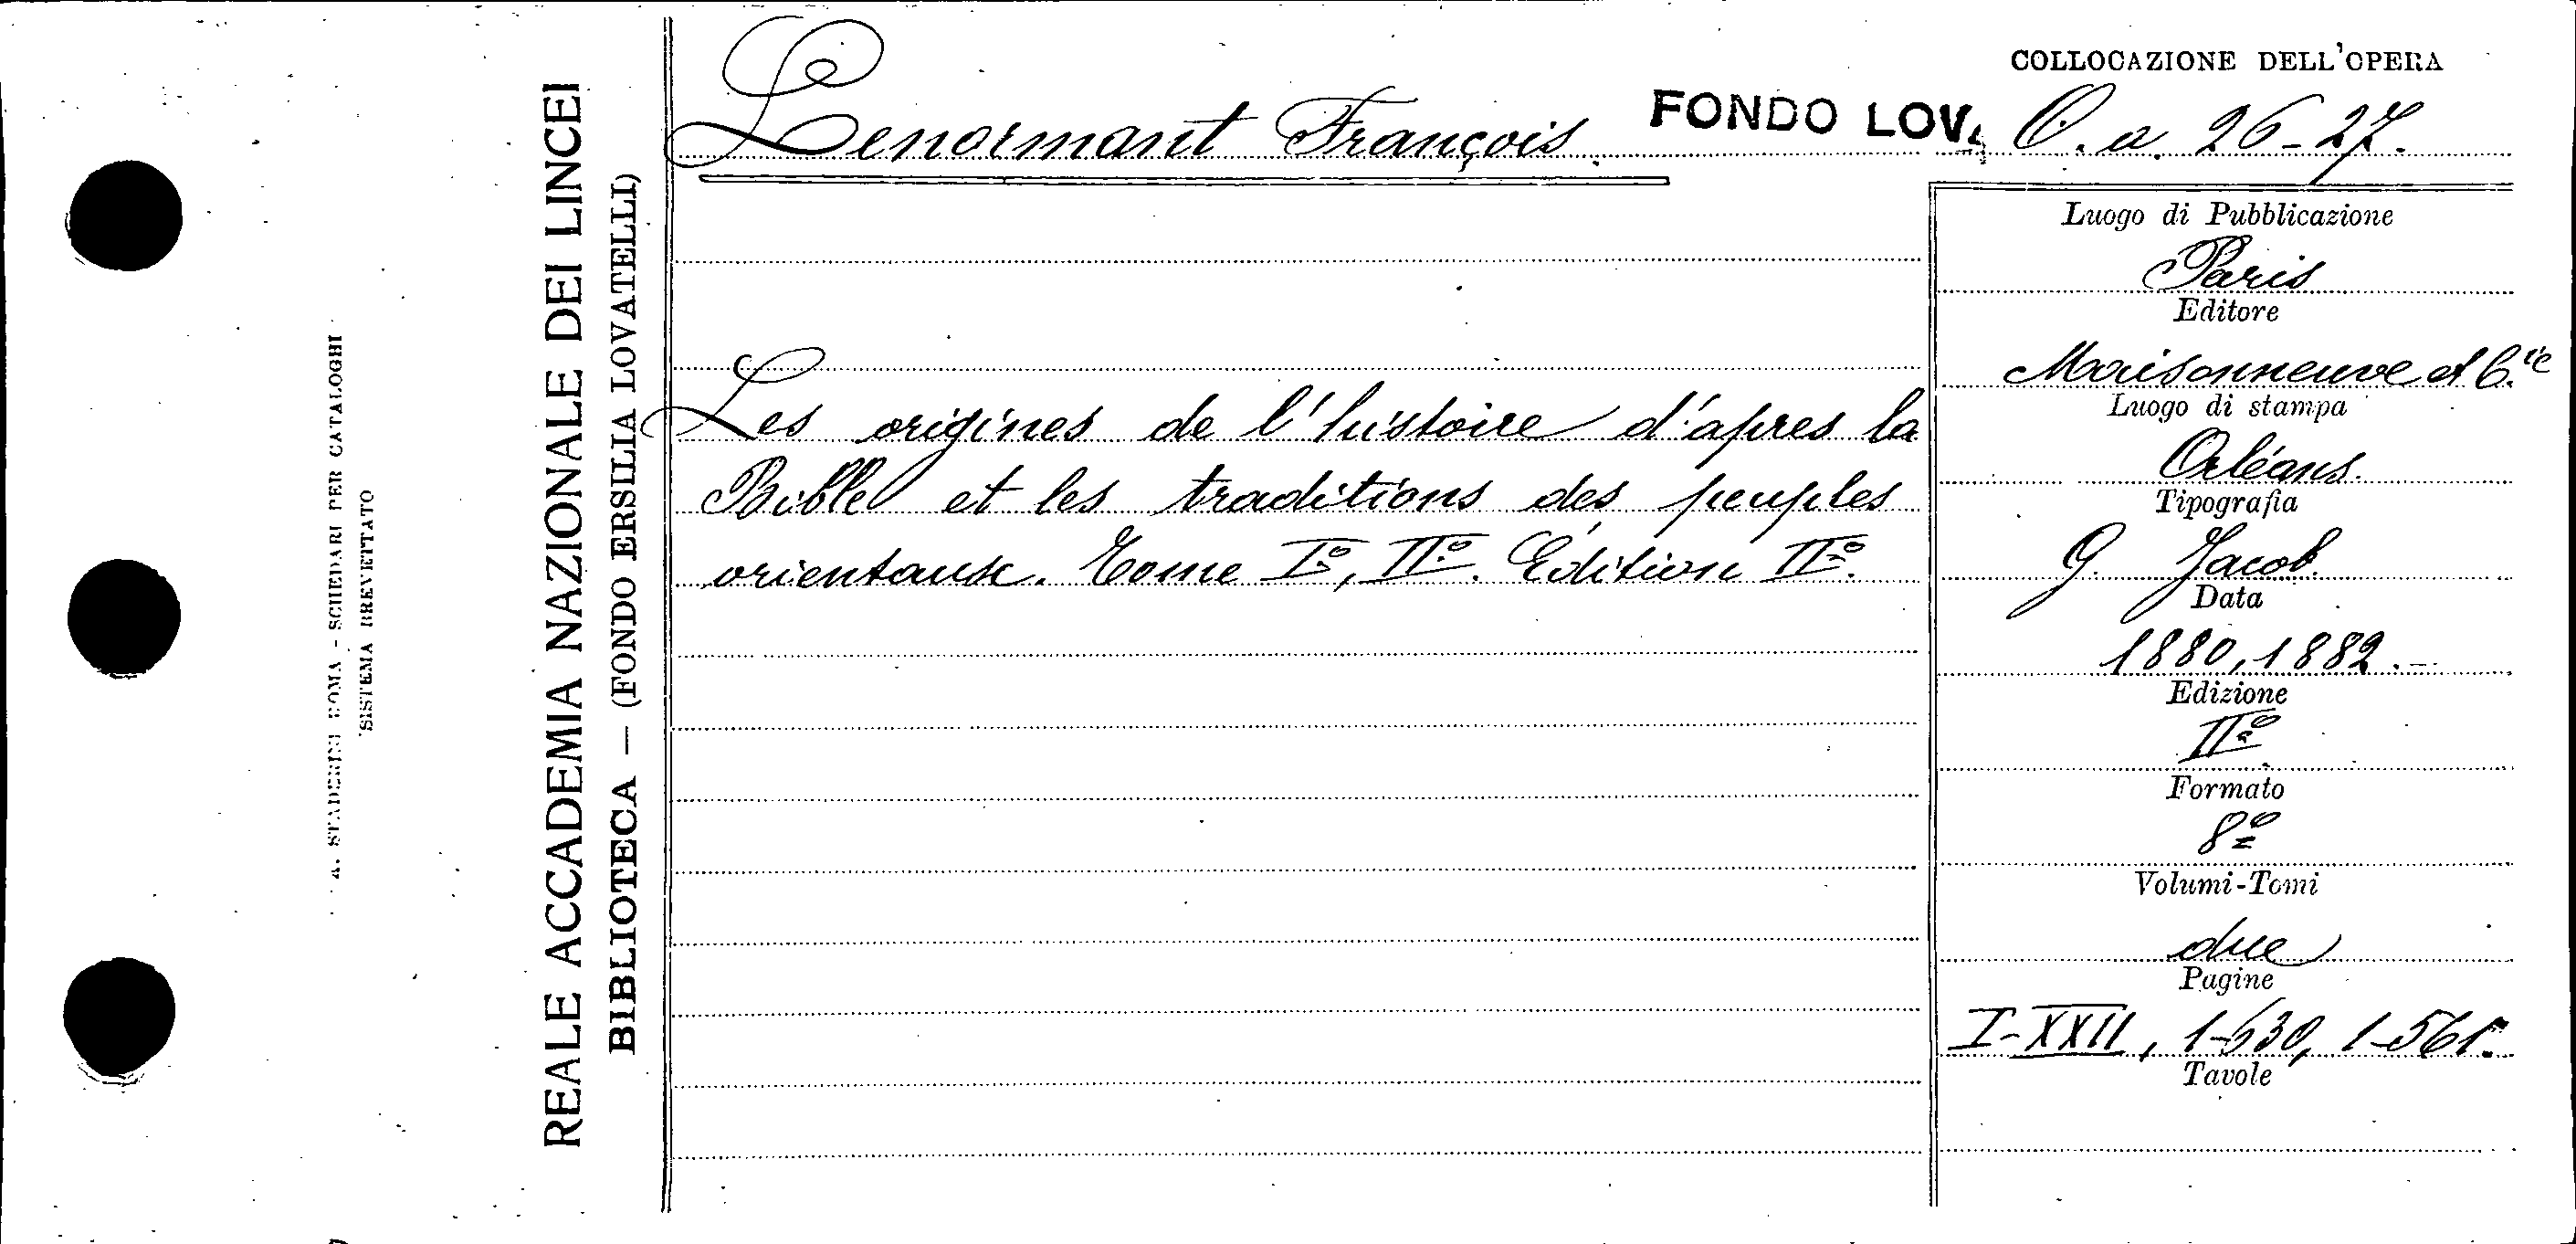 COLLOCAZIONE DELL'OPERA
Lenormant François. FONDO LOV. O. a. 26-27.
Les origines de l'histoire d'apres la
Bible et les traditions des peuples
orientaux. Tome Iº, IIº. Édition IIº.
Luogo di Pubblicazione
Paris
Editore
Maisonneuve et C.ie
Luogo di stampa
Orléans.
Tipografia
G. Jacob
Data
1880, 1882.-
Edizione
IIº
Formato
8º
Volumi-Tomi
due
Pagine
I-XXII, 1-630, 1-561.
Tavole
REALE ACCADEMIA NAZIONALE DEI LINCEI
BIBLIOTECA — (FONDO ERSILIA LOVATELLI)
A. STADERINI ROMA - SCHEDARI PER CATALOGHI
SISTEMA BREVETTATO